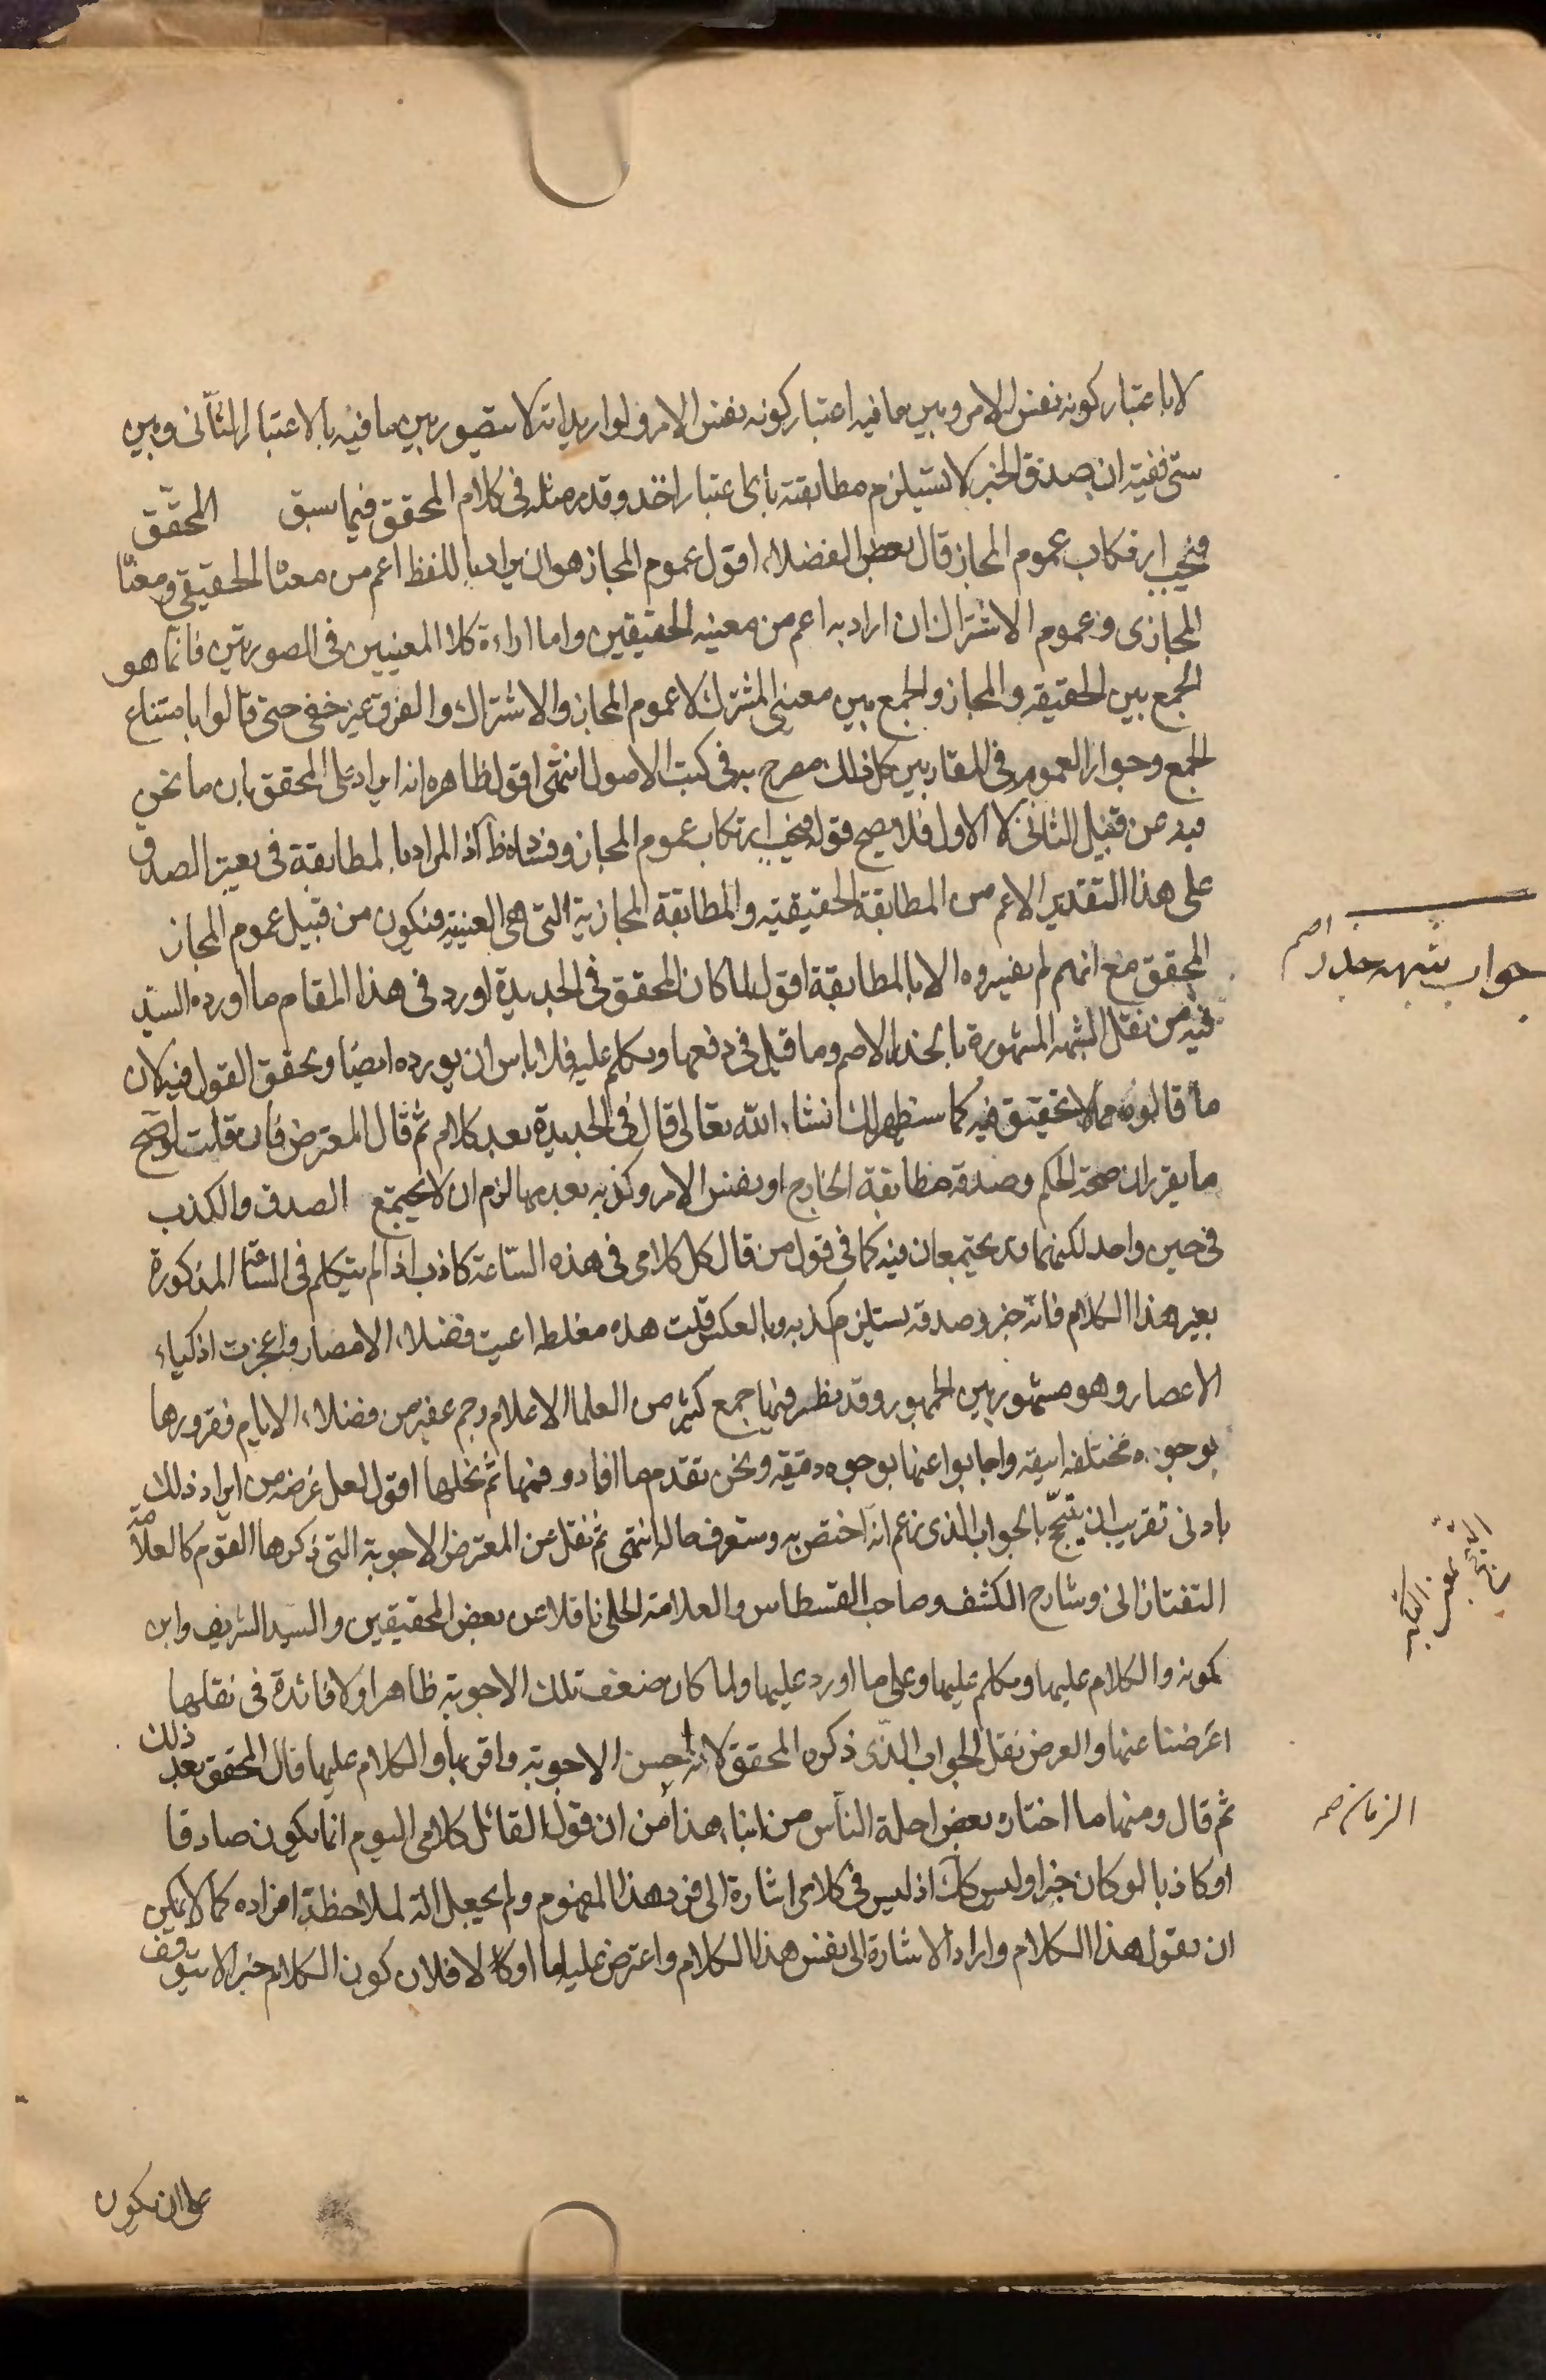 لا باعتبار كونه نفس الامر وبين ما فيه اعتبار كونه نفس الامر ولو اريد انه لا يتصور بين ما فيه بالاعتبار الثانى وبين
ستى ففيه ان صدق الخبر لا يستلزم مطابقته باى اعتبار اخذ وقد مر مثله فى كلام المحقق فيما سبق المحقق
فيجب ارتكاب عموم المجاز قال بعض الفضلاء اقول عموم المجاز هو ان يراد باللفظ اعم من معناه الحقيقى ومعناه
المجازى وعموم الاشتراك ان اراد به اعم من معنيه الحقيقين واما ارادة كلا المعنيين فى الصورتين فانما هو
الجمع بين الحقيقه والمجاز والجمع بين معنيى المشترك لا عموم المجاز والاشتراك والفرق غير خفى حتى قالوا بامتناع
الجمع وجواز العموم فى المقاربين كل ذلك مصرح به فى كتب الاصول انتهى اقول ظاهره انه ايراد على المحقق بان ما نحن
فيه من قبيل الثانى لا الاول فلا يصح قوله فيجب ارتكاب عموم المجاز وفساده ظ اذ المراد بالمطابقة فى تعريف الصدق
على هذا التقدير الاعم من المطابقة الحقيقيه والمطابقة المجازية التى هى العينيه فيكون من قبيل عموم المجاز
المحقق مع انهم لم يفسروه الا بالمطابقة اقول لما كان المحقق فى الجديدة اورد فى هذا المقام ما اورده السيد
فيه من نقل الشبهه المشهورة بالجذر الاصم وما قيل فى دفعها وتكلم عليه فلا باس ان نورده ايضا ونحقق القول فيه لان
ما قالوه مما لا تحقيق فيه كما سنظهر لك انشاء الله تعالى قال فى الجديدة بعد كلام ثم قال المعترض فان قلت لو صح
ما يقرر ان صحة الحكم وصدقه مطابقة الخارج او نفس الامر وكذبه بعدمها لزم ان لا يجتمع الصدق والكذب
فى حين واحد لكنهما قد يجتمعان فيه كما فى قول من قال كل كلامى فى هذه الساعة كاذب اذا لم يتكلم فى الساعة المذكورة
بغير هذا الكلام فانه خبر وصدقه يستلزم كذبه وبالعكس قلت هذه مغلطه اعيت فضلاء الامصار واعجزت اذكياء
الاعصار وهو مشهور بين الجمهور وقد نظر فيها جمع كثير من العلما الاعلام وجم غفير من فضلاء الايام فقرروها
بوجوه مختلفه انيقه واجابوا عنها بوجوه دقيقه ونحن نقدم ما افادو فيها ثم نحلها اقول لعل غرضه من ايراد ذلك
بادنى تقريب ان يتبجح بالجواب الذى زعم انه اختص به وستعرف حاله انتهى ثم نقل عن المعترض الاجوبة التى ذكرها القوم كالعلامه
التفتازانى وشارح الكشف وصاحب القسطاس والعلامة الحلى ناقلا عن بعض المحققين والسيد الشريف وابن
كمونه والكلام عليها وتكلم عليها وعلى ما اورد عليها ولما كان ضعف تلك الاجوبة ظاهرا ولا فائدة فى نقلها
اعرضنا عنها والعرض نقل الجواب الذى ذكره المحقق لانه احسن الاجوبة واقربها والكلام عليها قال المحقق بعد ذلك
ثم قال ومنها ما اختاره بعض اجلة الناس من ابناء هذا من ان قول القائل كلامى اليوم انما يكون صادقا
او كاذبا لو كان خبرا وليس كك اذ ليس فى كلامى اشارة الى فرد هذا المفهوم ولم يجعل الة لملاحظة افراده كما لا يمكن
ان يقول هذا الكلام واراد الاشارة الى نفس هذا الكلام واعترض عليه اما اولا فلان كون الكلام خبرا لا يتوقف
على ان يكون
جواب شبهه جذر اصم
الزمان صح